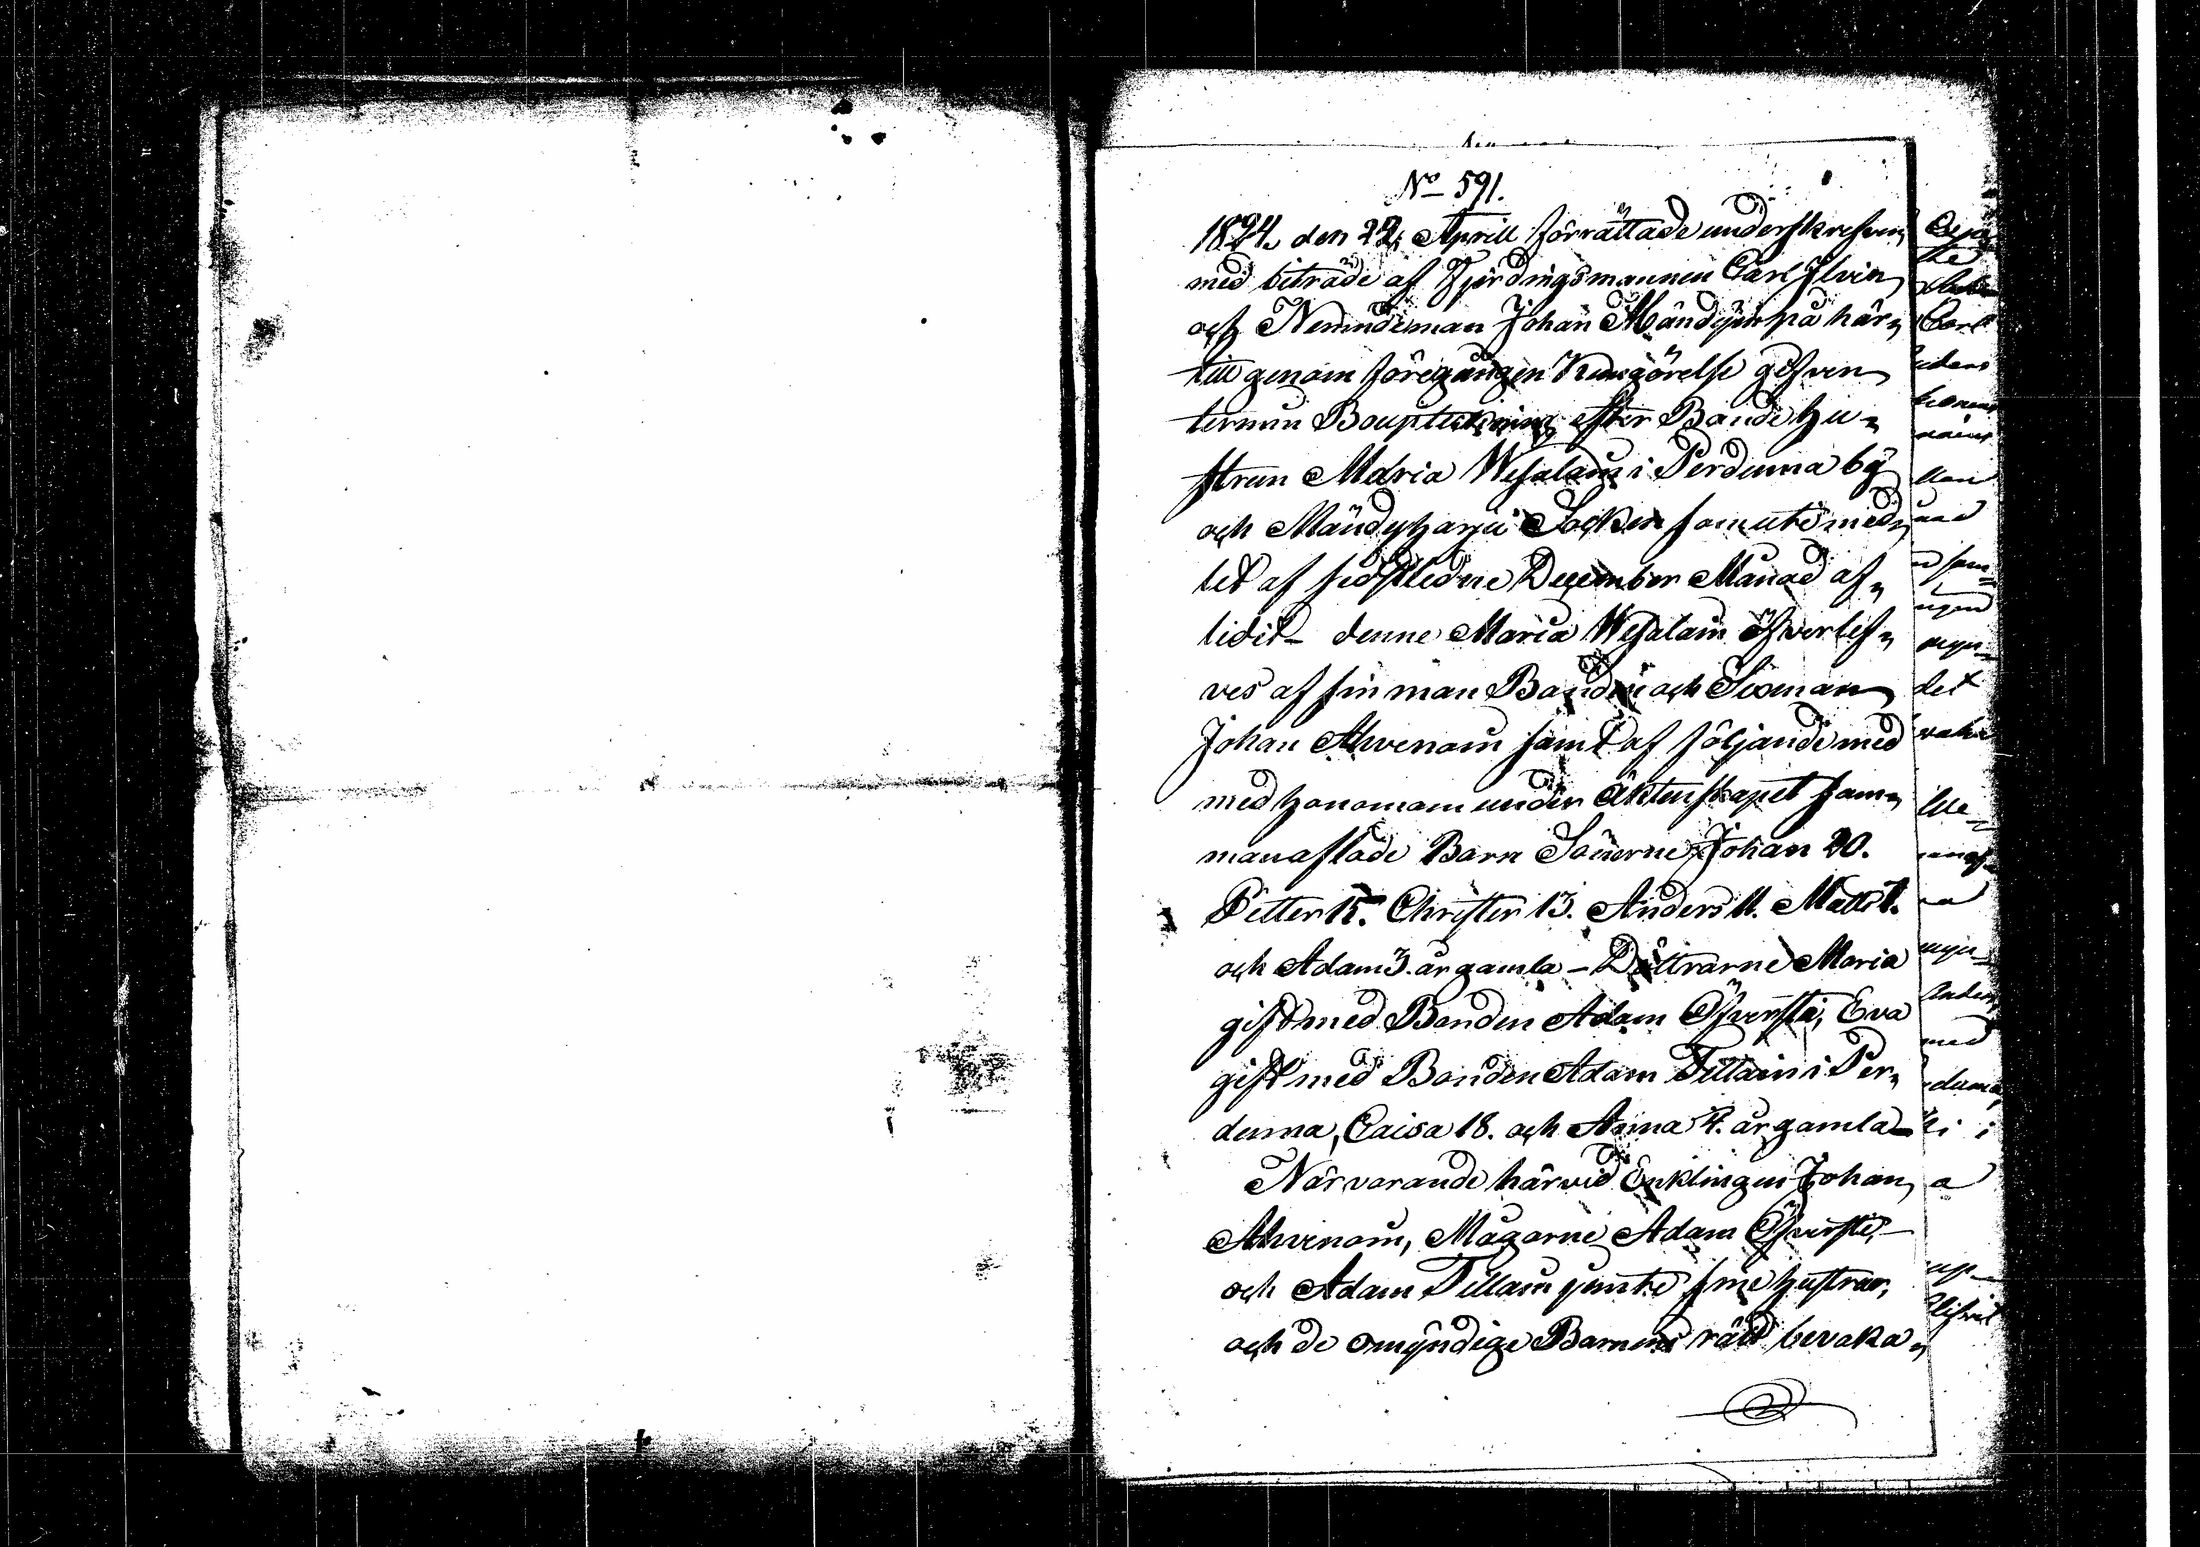 No 591.
1824. den 22. Aprill förrättade underskrefven
med biträde af Fjerdingsmannen Carl Ilvin
och Nemndeman Johan Mändynpä här„
till genom föregången Kungörelse gifven
termin Boupteckning efter Bonde hu„
strun Maria Wesalain i Perduma bÿ
och Mändyharju Socken som uti med„
let af sidstledne December Månad af„
lidit – denne Maria Wesalain öfverlef„
ves af sin man Bonden och Sexman
Johan Ahvenain samt af följande med
med honom under äktenskapet sam„
manaflade Barn Sönerne Johan 20.
Petter 15. Christer 13. Anders 11. Matts
och Adam 3. år gamla – Döttrarne Maria
gift med Bonden Adam Öfversti, Eva
gift med Bonden Adam Tillain i Per„
duma, Caisa 18. och Anna 4. år gamla –
Närvarande härvid Enklingen Johan
Ahvenain, Mågarne Adam Öfversti, –
och Adam Tillain jemte sine hustrur,
och de omÿndige Barnens rätt bevaka„
Carl
det
med
a